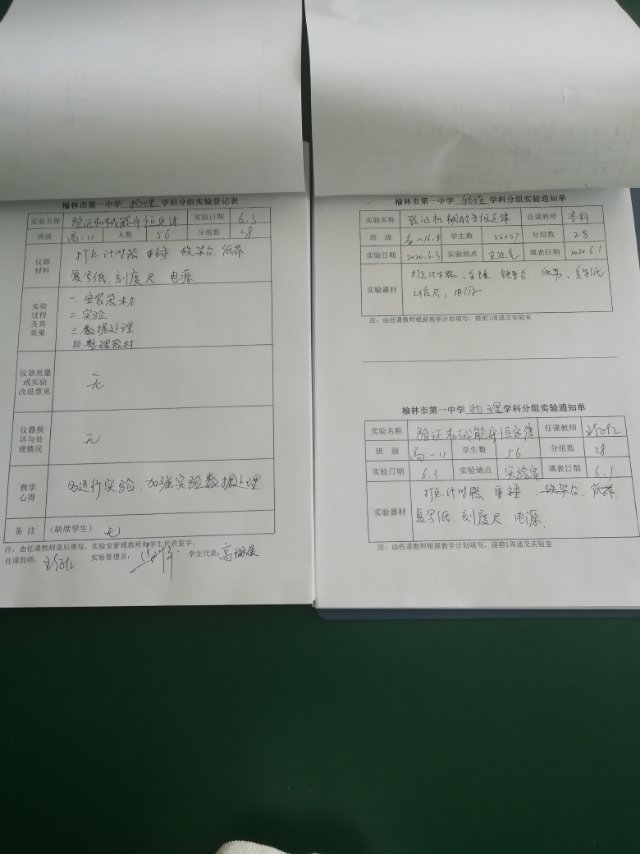 榆林市第一中学 物理 学科分组实验登记表
实验名称 验证机械能守恒定律 实验日期 6.3
班级 高一11 人数 56 分组数 28
仪器材料 打点计时器 重锤 铁架台 纸带
复写纸 刻度尺 电源
实验过程及其效果 一 安装器材
二 实验
三 数据处理
四 整理器材
仪器质量或实验改进意见 无
仪器损坏与处理情况 无
教学心得 进行实验、加强实验数据处理
备注 (缺席学生) 无
注:由任课教师课后填写,实验室管理教师和学生代表签字。
任课教师: 实验管理员: 学生代表:
榆林市第一中学 物理 学科分组实验通知单
实验名称 验证机械能守恒定律 任课教师
班级 高一 学生数 56+57 分组数 28
实验日期 2020.6.3 实验地点 实验室 填表日期 2020.6.1
实验器材 打点计时器、重锤、铁架台、纸带、复写纸
刻度尺、电源
注:由任课教师根据教学计划填写,提前1周递交实验室
榆林市第一中学 物理 学科分组实验通知单
实验名称 验证机械能守恒定律 任课教师
班级 高一11 学生数 56 分组数 28
实验日期 6.3 实验地点 实验室 填表日期 6.1
实验器材 打点计时器 重锤 铁架台、纸带、
复写纸、刻度尺、电源、
注:由任课教师根据教学计划填写,提前1周递交实验室